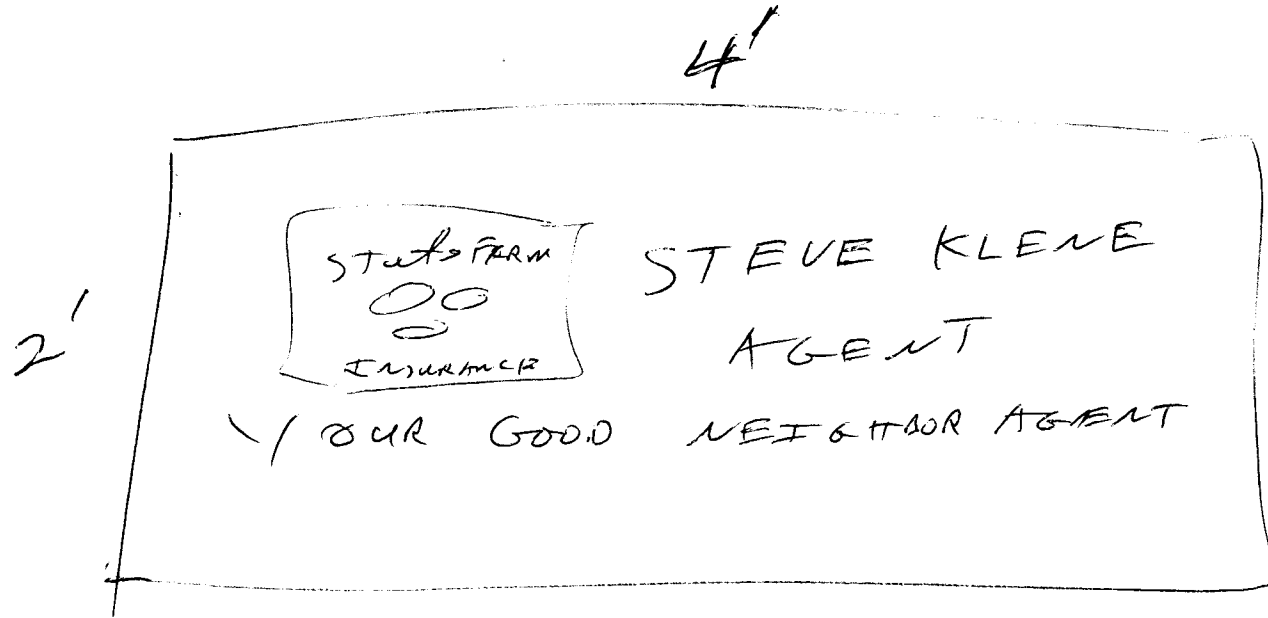 4'
2'
State FARM
INSURANCE
STEVE KLENE
AGENT
YOUR GOOD NEIGHBOR AGENT